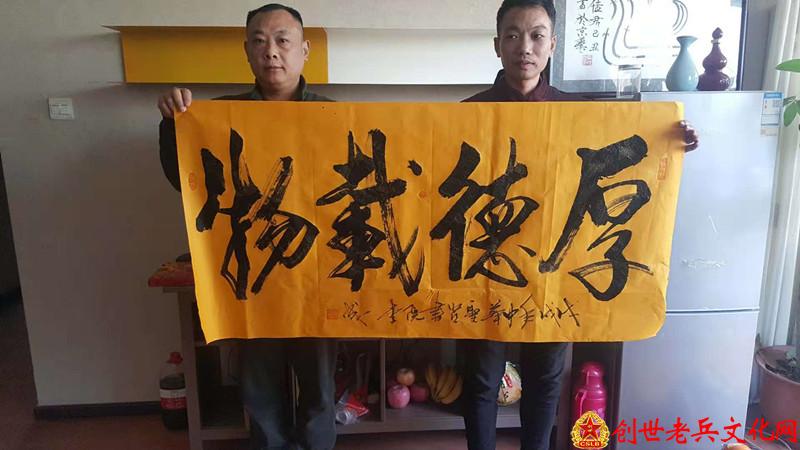 厚德載物
戊戌年中華聖賢書院李
俊君己丑
书於京华
创世老兵文化网
CSLB